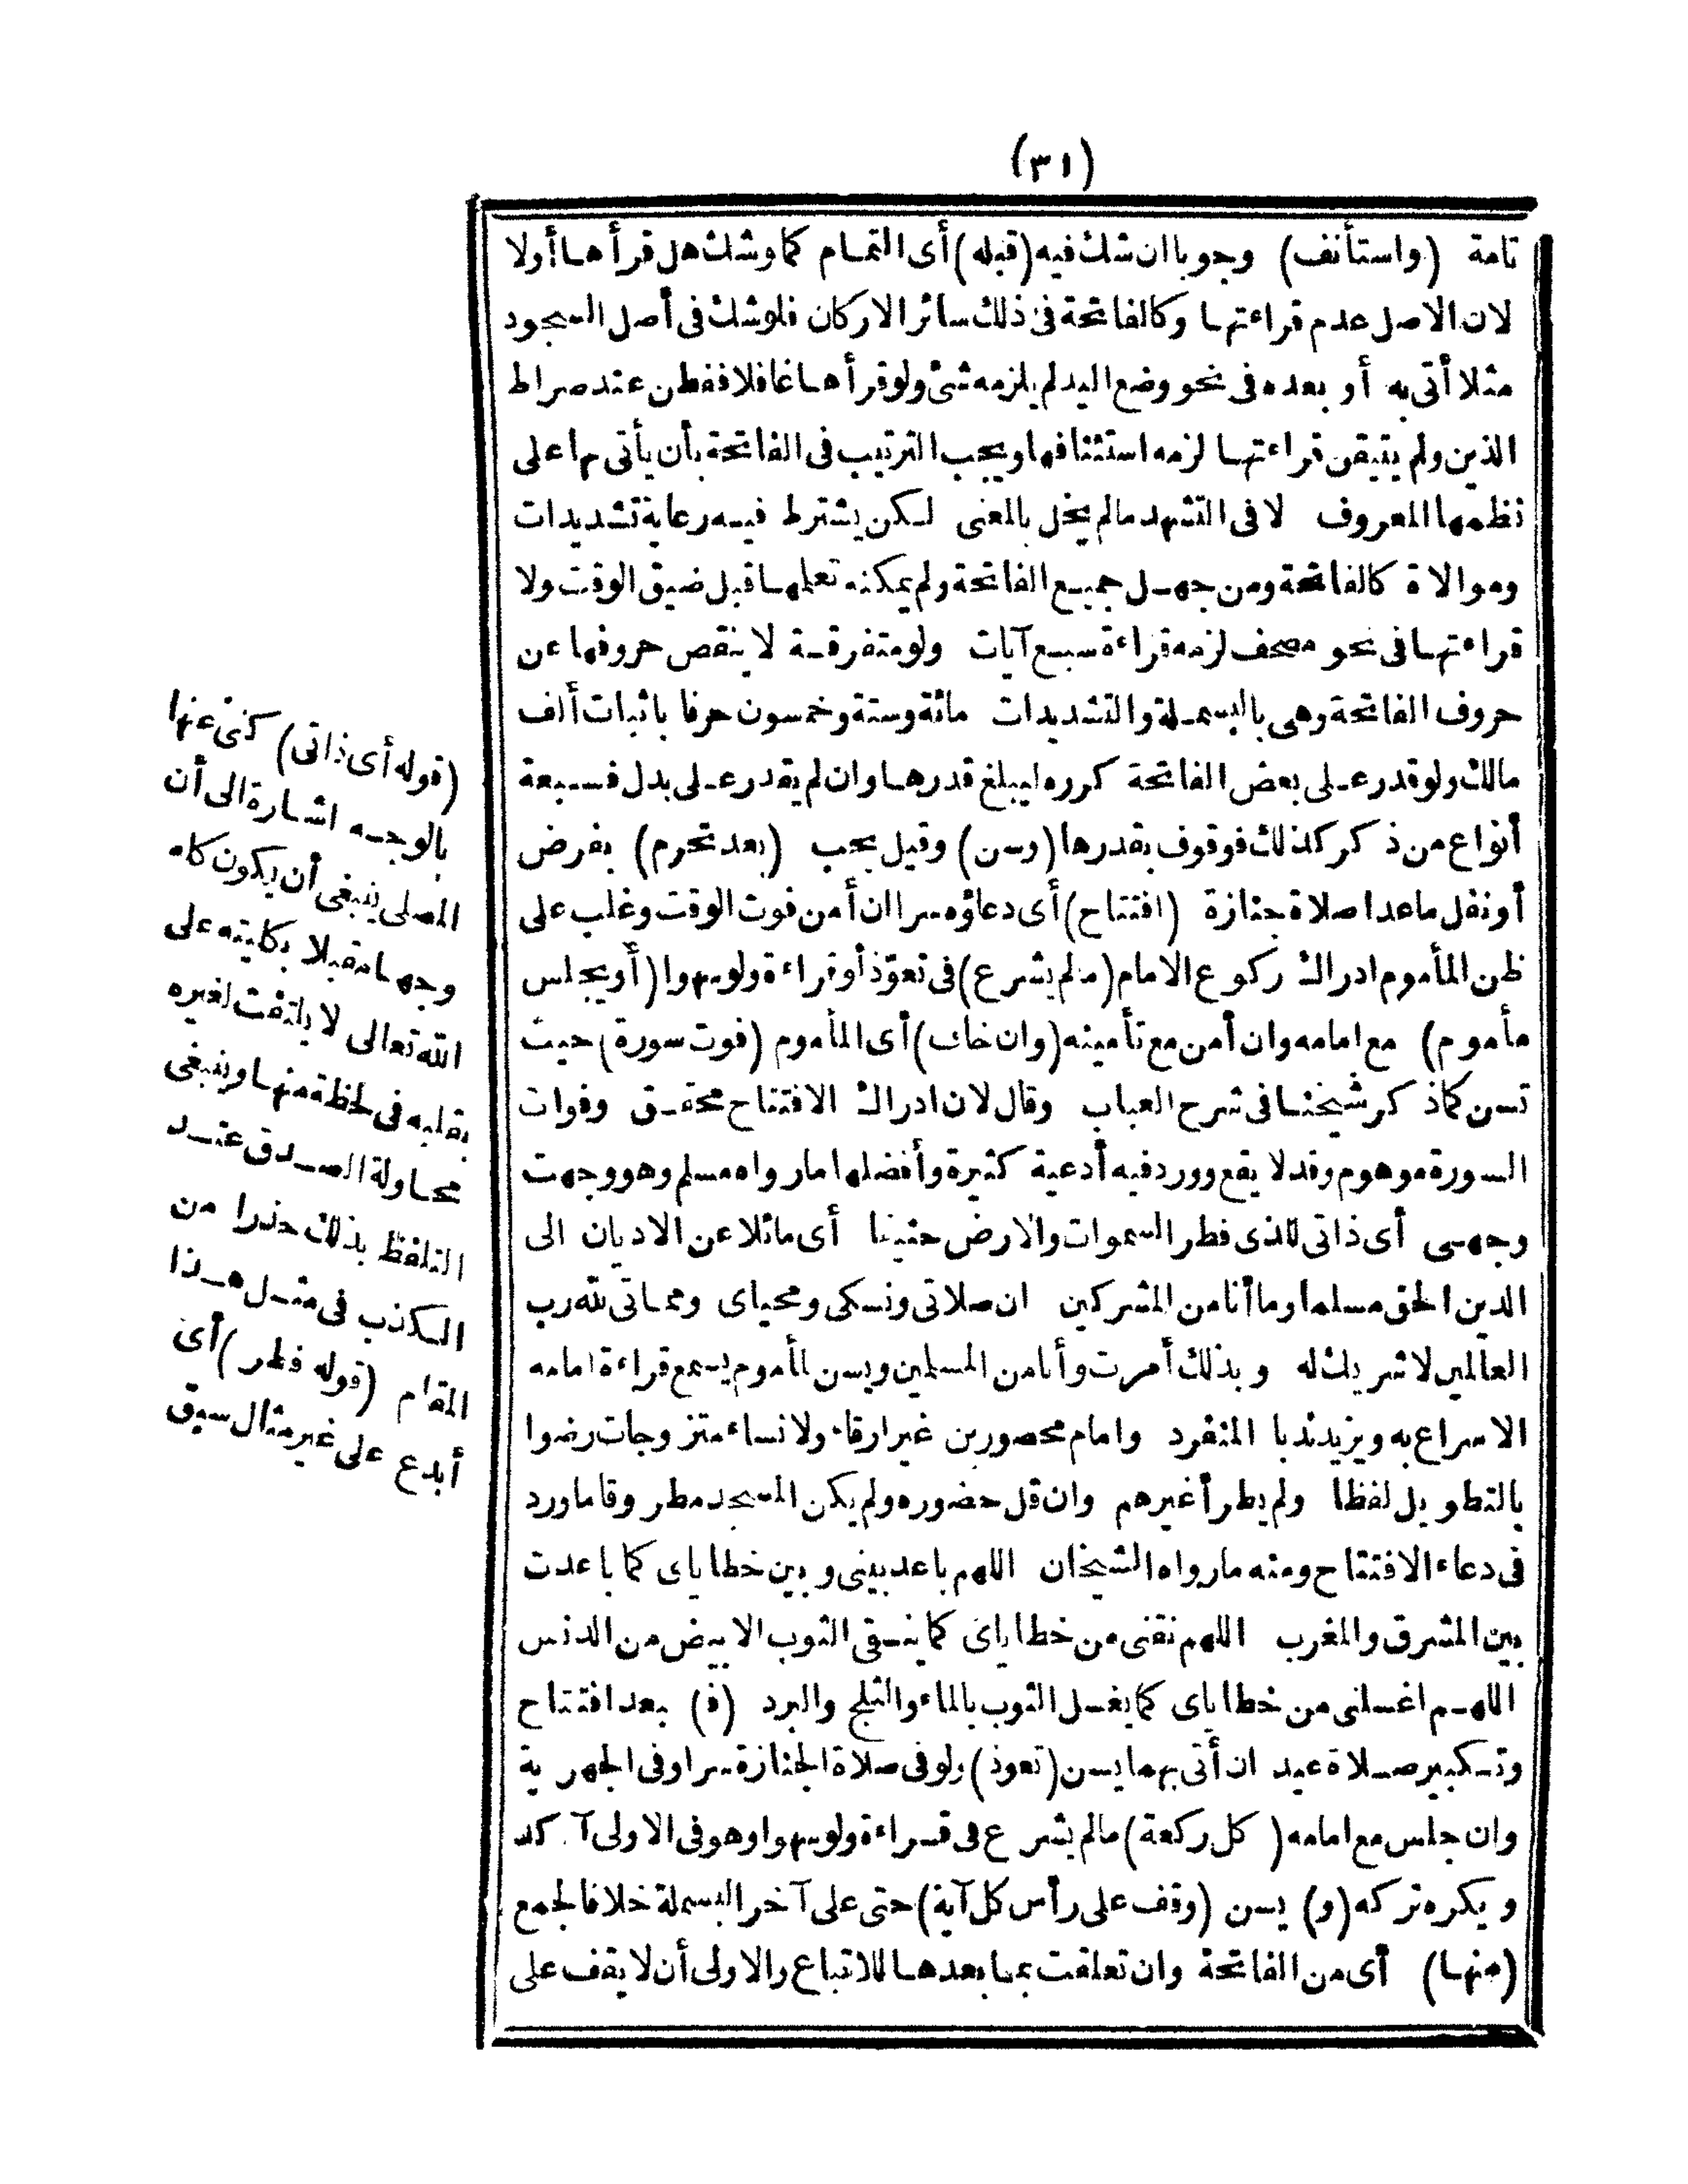 (٣١)
تامة (واستأنف) وجوبا ان شك فيه (قبله) أى التمام كما وشك هل قرأها أولا
لان الاصل عدم قراءتها وكالفاتحة فى ذلك سائر الاركان فلوشك فى أصل السجود
مثلا أتى به أو بعده فى نحو وضع اليد لم يلزمه شئ ولو قرأها غافلا ففطن عند صراط
الذين ولم يتيقن قراءتها لزمه استئنافها ويجب الترتيب فى الفاتحة بأن يأتى بها على
نظمها المعروف لا فى التشهد مالم يخل بالمعنى لكن يشترط فيه رعاية تشديدات
وموالاة كالفاتحة ومن جهل جميع الفاتحة ولم يمكنه تعلمها قبل ضيق الوقت ولا
قراءتها فى نحو مصحف لزمه قراءة سبع آيات ولو متفرقة لا ينقص حروفها عن
حروف الفاتحة وهى بالبسملة والتشديدات مائة وستة وخمسون حرفا باثبات ألف
مالك ولو قدر على بعض الفاتحة كرره ليبلغ قدرها وان لم يقدر على بدل فسبعة
أنواع من ذكر كذلك فوقوف بقدرها (وسن) وقيل يجب (بعد تحرم) بفرض
أونفل ماعدا صلاة جنازة (افتتاح) أى دعاؤه سرا ان أمن فوت الوقت وغلب على
ظن المأموم ادراك ركوع الامام (مالم يشرع) فى تعوّذ أوقراءة ولوسهوا (أويجلس
مأموم) مع امامه وان أمن مع تأمينه (وان خاف) أى المأموم (فوت سورة) حيث
تسن كماذكر شيخنا فى شرح العباب وقال لان ادراك الافتتاح محقق وفوات
السورة موهوم وقد لا يقع وورد فيه أدعية كثيرة وأفضلها مارواه مسلم وهو وجهت
وجهى أى ذاتى للذى فطر السموات والارض حنيفا أى مائلا عن الاديان الى
الدين الحق مسلما وما أنا من المشركين ان صلاتى ونسكى ومحياى ومماتى لله رب
العالمين لا شريك له وبذلك أمرت وأنا من المسلمين ويسن لمأموم يسمع قراءة امامه
الاسراع به ويزيد ندبا المنفرد وامام محصورين غير ارقاء ولا نساء متزوجات رضوا
بالتطويل لفظا ولم يطرأ غيرهم وان قل حضوره ولم يكن المسجد مطروقا ماورد
فى دعاء الافتتاح ومنه مارواه الشيخان اللهم باعد بينى وبين خطاياى كما باعدت
بين المشرق والمغرب اللهم نقنى من خطاياى كما ينقى الثوب الابيض من الدنس
اللهم اغسلنى من خطاياى كما يغسل الثوب بالماء والثلج والبرد (ف) بعد افتتاح
وتكبير صلاة عيد ان أتى بهما يسن (تعوذ) ولو فى صلاة الجنازة سرا وفى الجهرية
وان جلس مع امامه (كل ركعة) مالم يشرع فى قراءة ولوسهوا وهو فى الاولى آكد
ويكره تركه (و) يسن (وقف على رأس كل آية) حتى على آخر البسملة خلافا لجمع
(منها) أى من الفاتحة وان تعلقت بما بعدها للاتباع والاولى أن لا يقف على
(قوله أى ذاتى) كنى عنها
بالوجه اشارة الى أن
المصلى ينبغى أن يكون كله
وجها مقبلا بكليته على
الله تعالى لا يلتفت لغيره
بقلبه فى لحظة منها وينبغى
محاولة الصدق عند
التلفظ بذلك حذرا من
الكذب فى مثل هذا
المقام (قوله فطر) أى
أبدع على غير مثال سبق